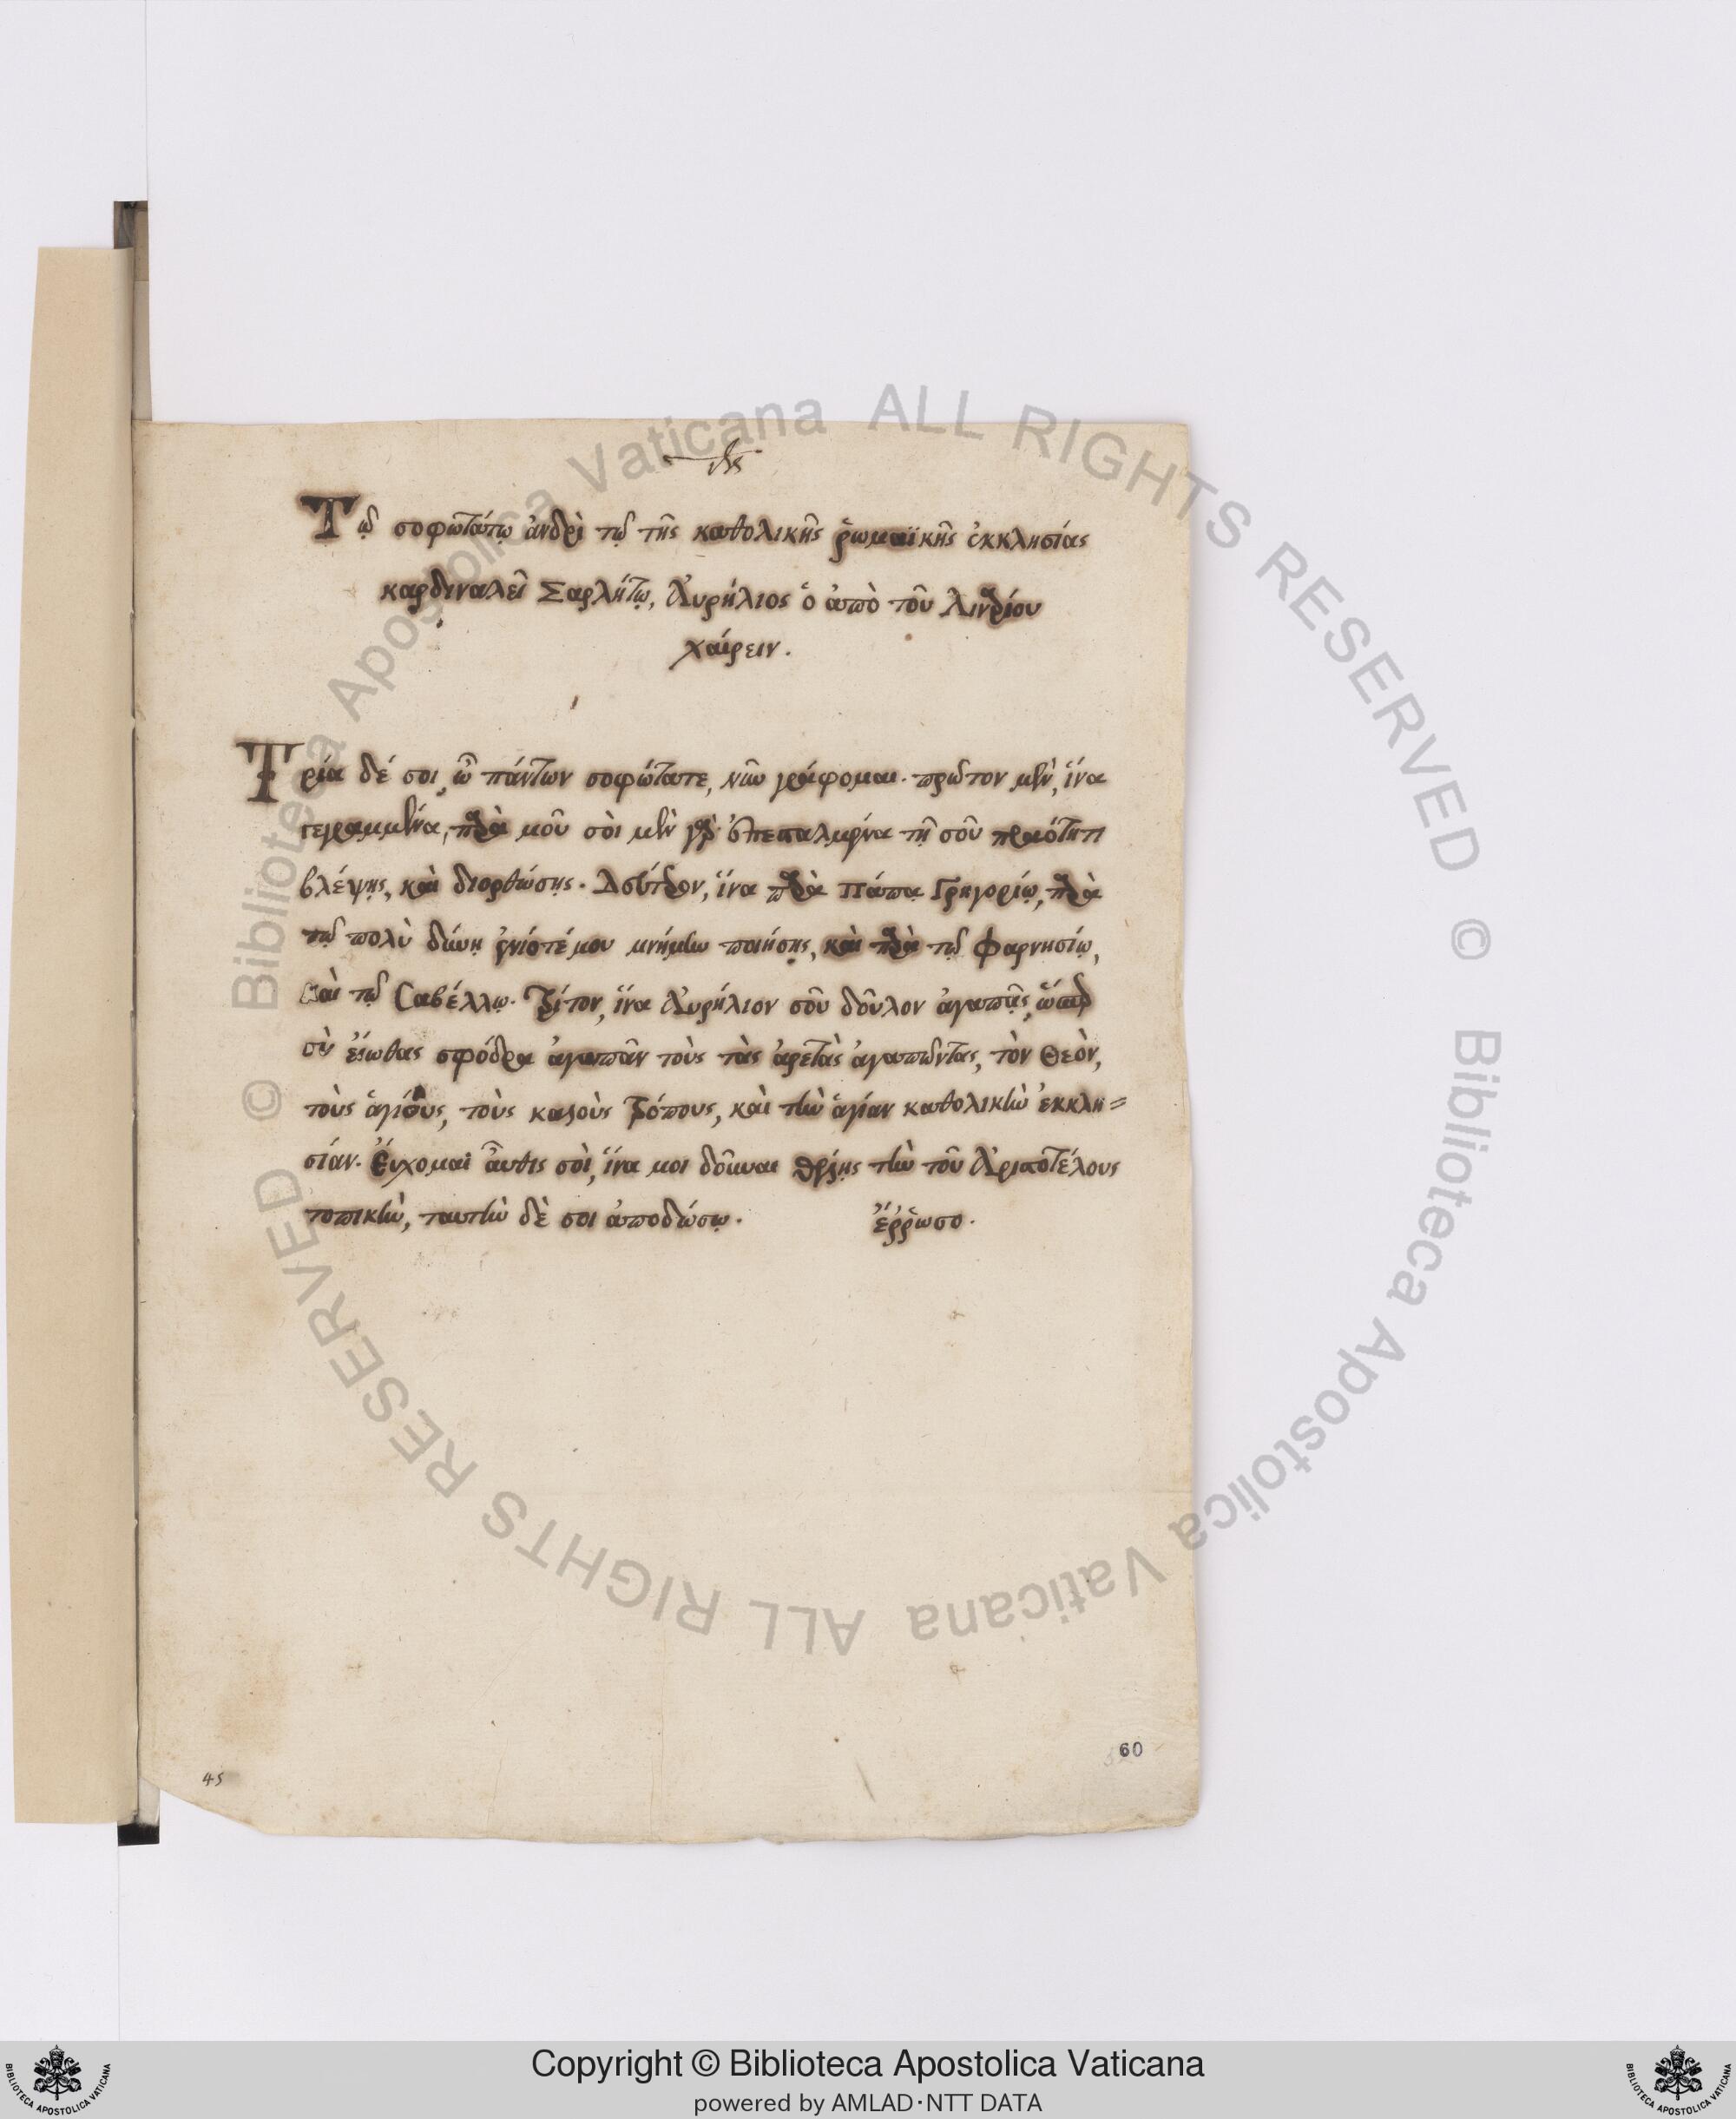 Τῷ σοφωτάτῳ ἀνδρὶ τῷ τῆς καθολικῆς ῥωμαϊκῆς ἐκκλησίας
καρδιναλεῖ Σαρλήτῳ, Ἀυρήλιος ὁ ἀπὸ τοῦ Λινδρίου
χαίρειν.
Τρία δέ σοι, ὦ πάντων σοφώτατε, νῦν γράφομαι. πρῶτον μὲν, ἵνα
γεγραμμένα, παρὰ μοῦ σὸι μὲν τῇ σοῦ πραότητι
βλέψῃς, καὶ διορθώσῃς. Δεύτερον, ἵνα παρὰ Πάπᾳ Γρηγορίῳ, παρὰ
τῷ πολὺ μου μνήμην ποιήσῃς, καὶ παρὰ τῷ Φαρνησίῳ,
καὶ τῷ Σαβέλλῳ. Τρίτον, ἵνα Ἀυρήλιον σοῦ δοῦλον ἀγαπᾷς, ὥσπερ
σὺ ἐίωθας σφόδρα ἀγαπᾶν τοὺς τὰς ἀρετὰς ἀγαπῶντας, τὸν Θεὸν,
τοὺς ἁγίους, τοὺς καλοὺς τρόπους, καὶ τὴν ἁγίαν καθολικὴν ἐκκλη=
σίαν. Ἐύχομαι αὖθις σὸι, ἵνα μοι δοῦναι τὴν τοῦ Ἀριστοτέλους
τοπικὴν, ταυτὴν δὲ σοι ἀποδώσῳ. ἔῤῥωσο.
45
60
© Biblioteca Apostolica Vaticana ALL RIGHTS RESERVED
© Biblioteca Apostolica Vaticana ALL RIGHTS RESERVED
Copyright © Biblioteca Apostolica Vaticana
powered by AMLAD·NTT DATA
BIBLIOTECA APOSTOLICA VATICANA
BIBLIOTECA APOSTOLICA VATICANA